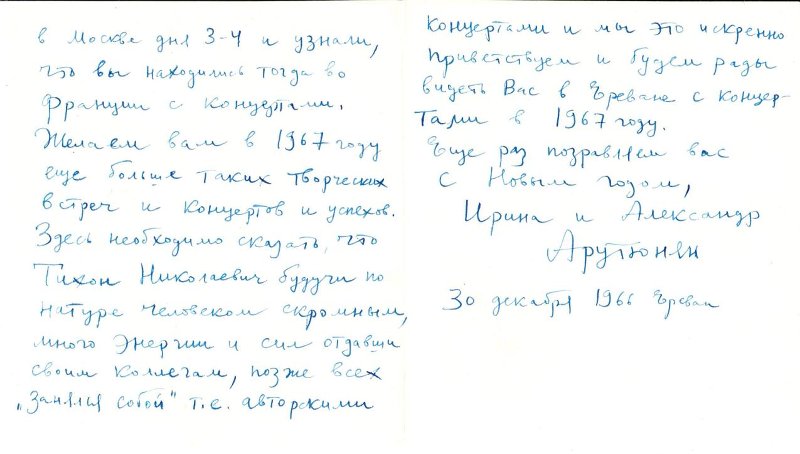 в Москве дня 3-4 и узнали,
что вы находились тогда во
Франции с концертами.
Желаем вам в 1967 году
еще больше таких творческих
встреч и концертов и успехов.
Здесь необходимо сказать, что
Тихон Николаевич будучи по
натуре человеком скромным,
много энергии и сил отдавши
своим коллегам, позже всех
„занялся собой" т.е. авторскими
концертами и мы это искренно
приветствуем и будем рады
видеть Вас в Ереване с концер-
тами в 1967 году.
Еще раз поздравляем вас
с Новым годом,
Ирина и Александр
Арутюнян
30 декабря 1966 Ереван